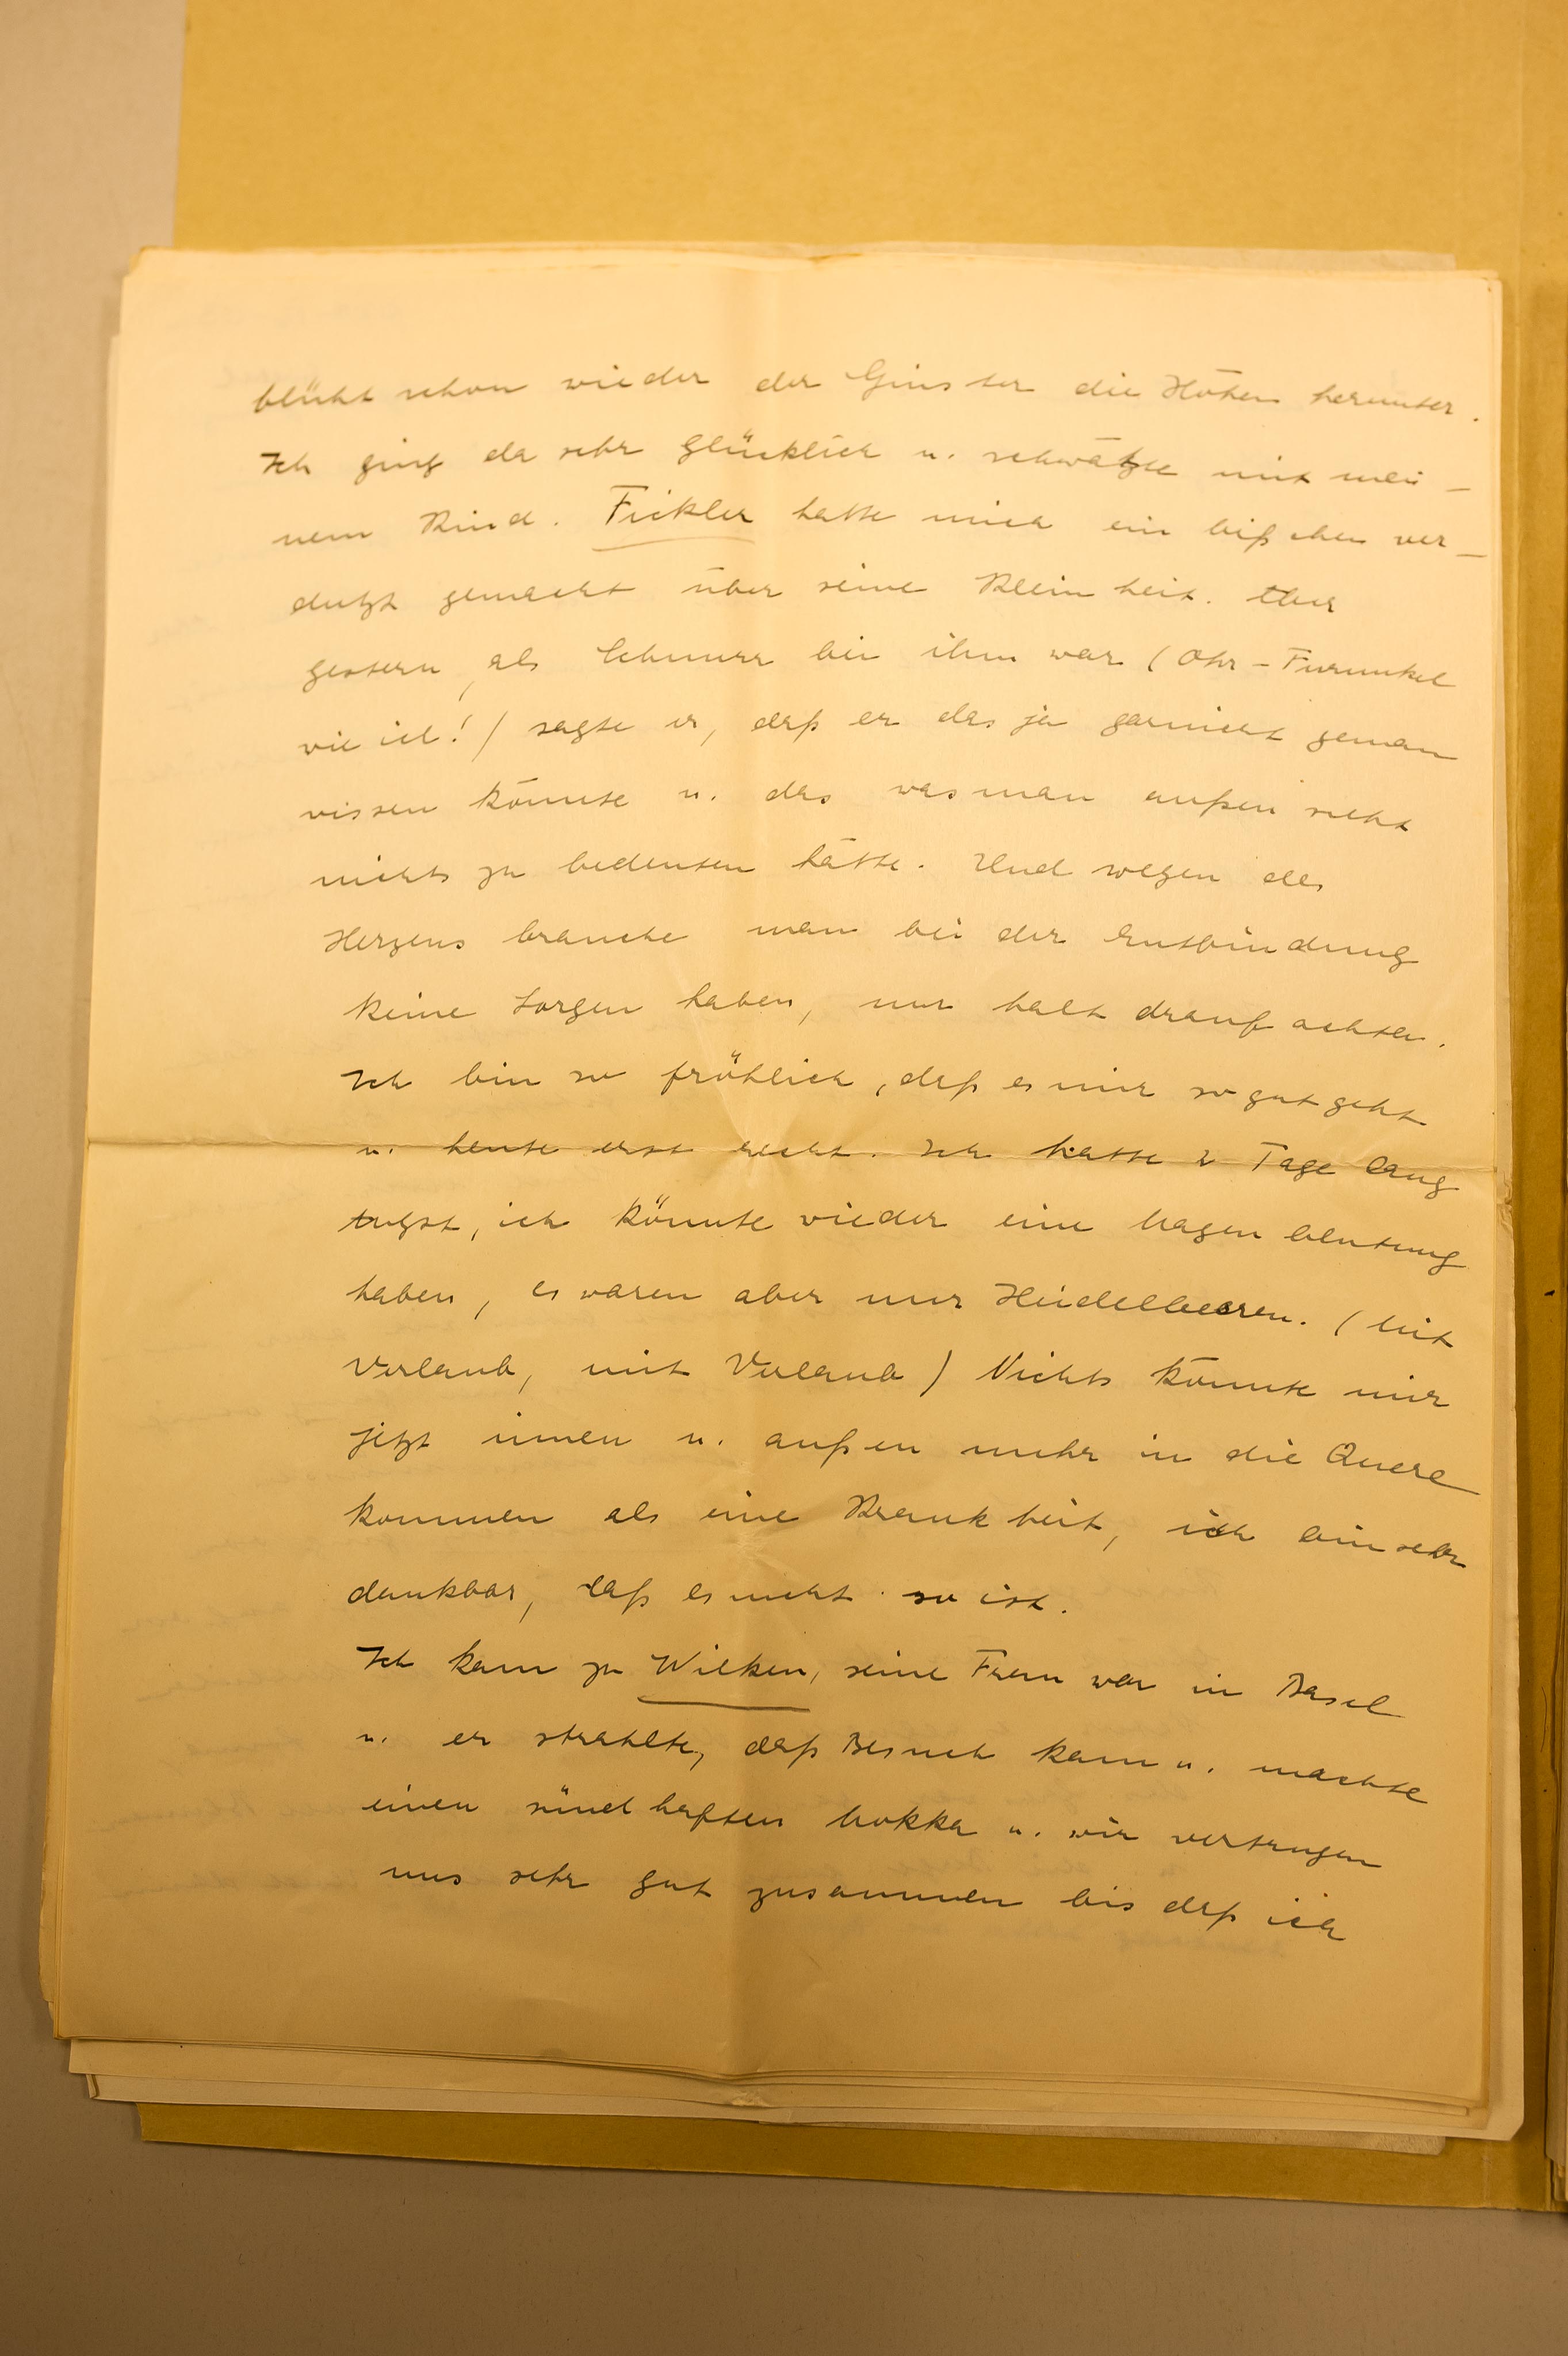 blüht schon wieder der Ginster die Höhen herunter.
Ich ging da sehr glücklich u. schwätzte mit mei-
nem Kind. Fickler hatte mich ein bißchen ver-
dutzt gemacht über seine Kleinheit. Aber
gestern, als Schnurr bei ihm war (Ohr-Furunkel
wie ich!) sagte er, daß er das ja garnicht genau
wissen könnte u. das was man außen sieht
nichts zu bedeuten hätte. Und wegen des
Herzens brauche man bei der Entbindung
keine Sorgen haben, nur halt drauf achten.
Ich bin so fröhlich, daß es mir so gut geht
u. heute erst recht. Ich hatte 2 Tage lang
Angst, ich könnte wieder eine Magenblutung
haben, es waren aber nur Heidelbeeren. (Mit
Verlaub, mit Verlaub) Nichts könnte mir
jetzt innen u. außen mehr in die Quere
kommen als eine Krankheit, ich bin sehr
dankbar, daß es nicht so ist.
Ich kam zu Wilken, seine Frau war in Basel
u. er strahlte, daß Besuch kam u. machte
einen sündhaften Mokka u. wir vertrugen
uns sehr gut zusammen bis daß ich